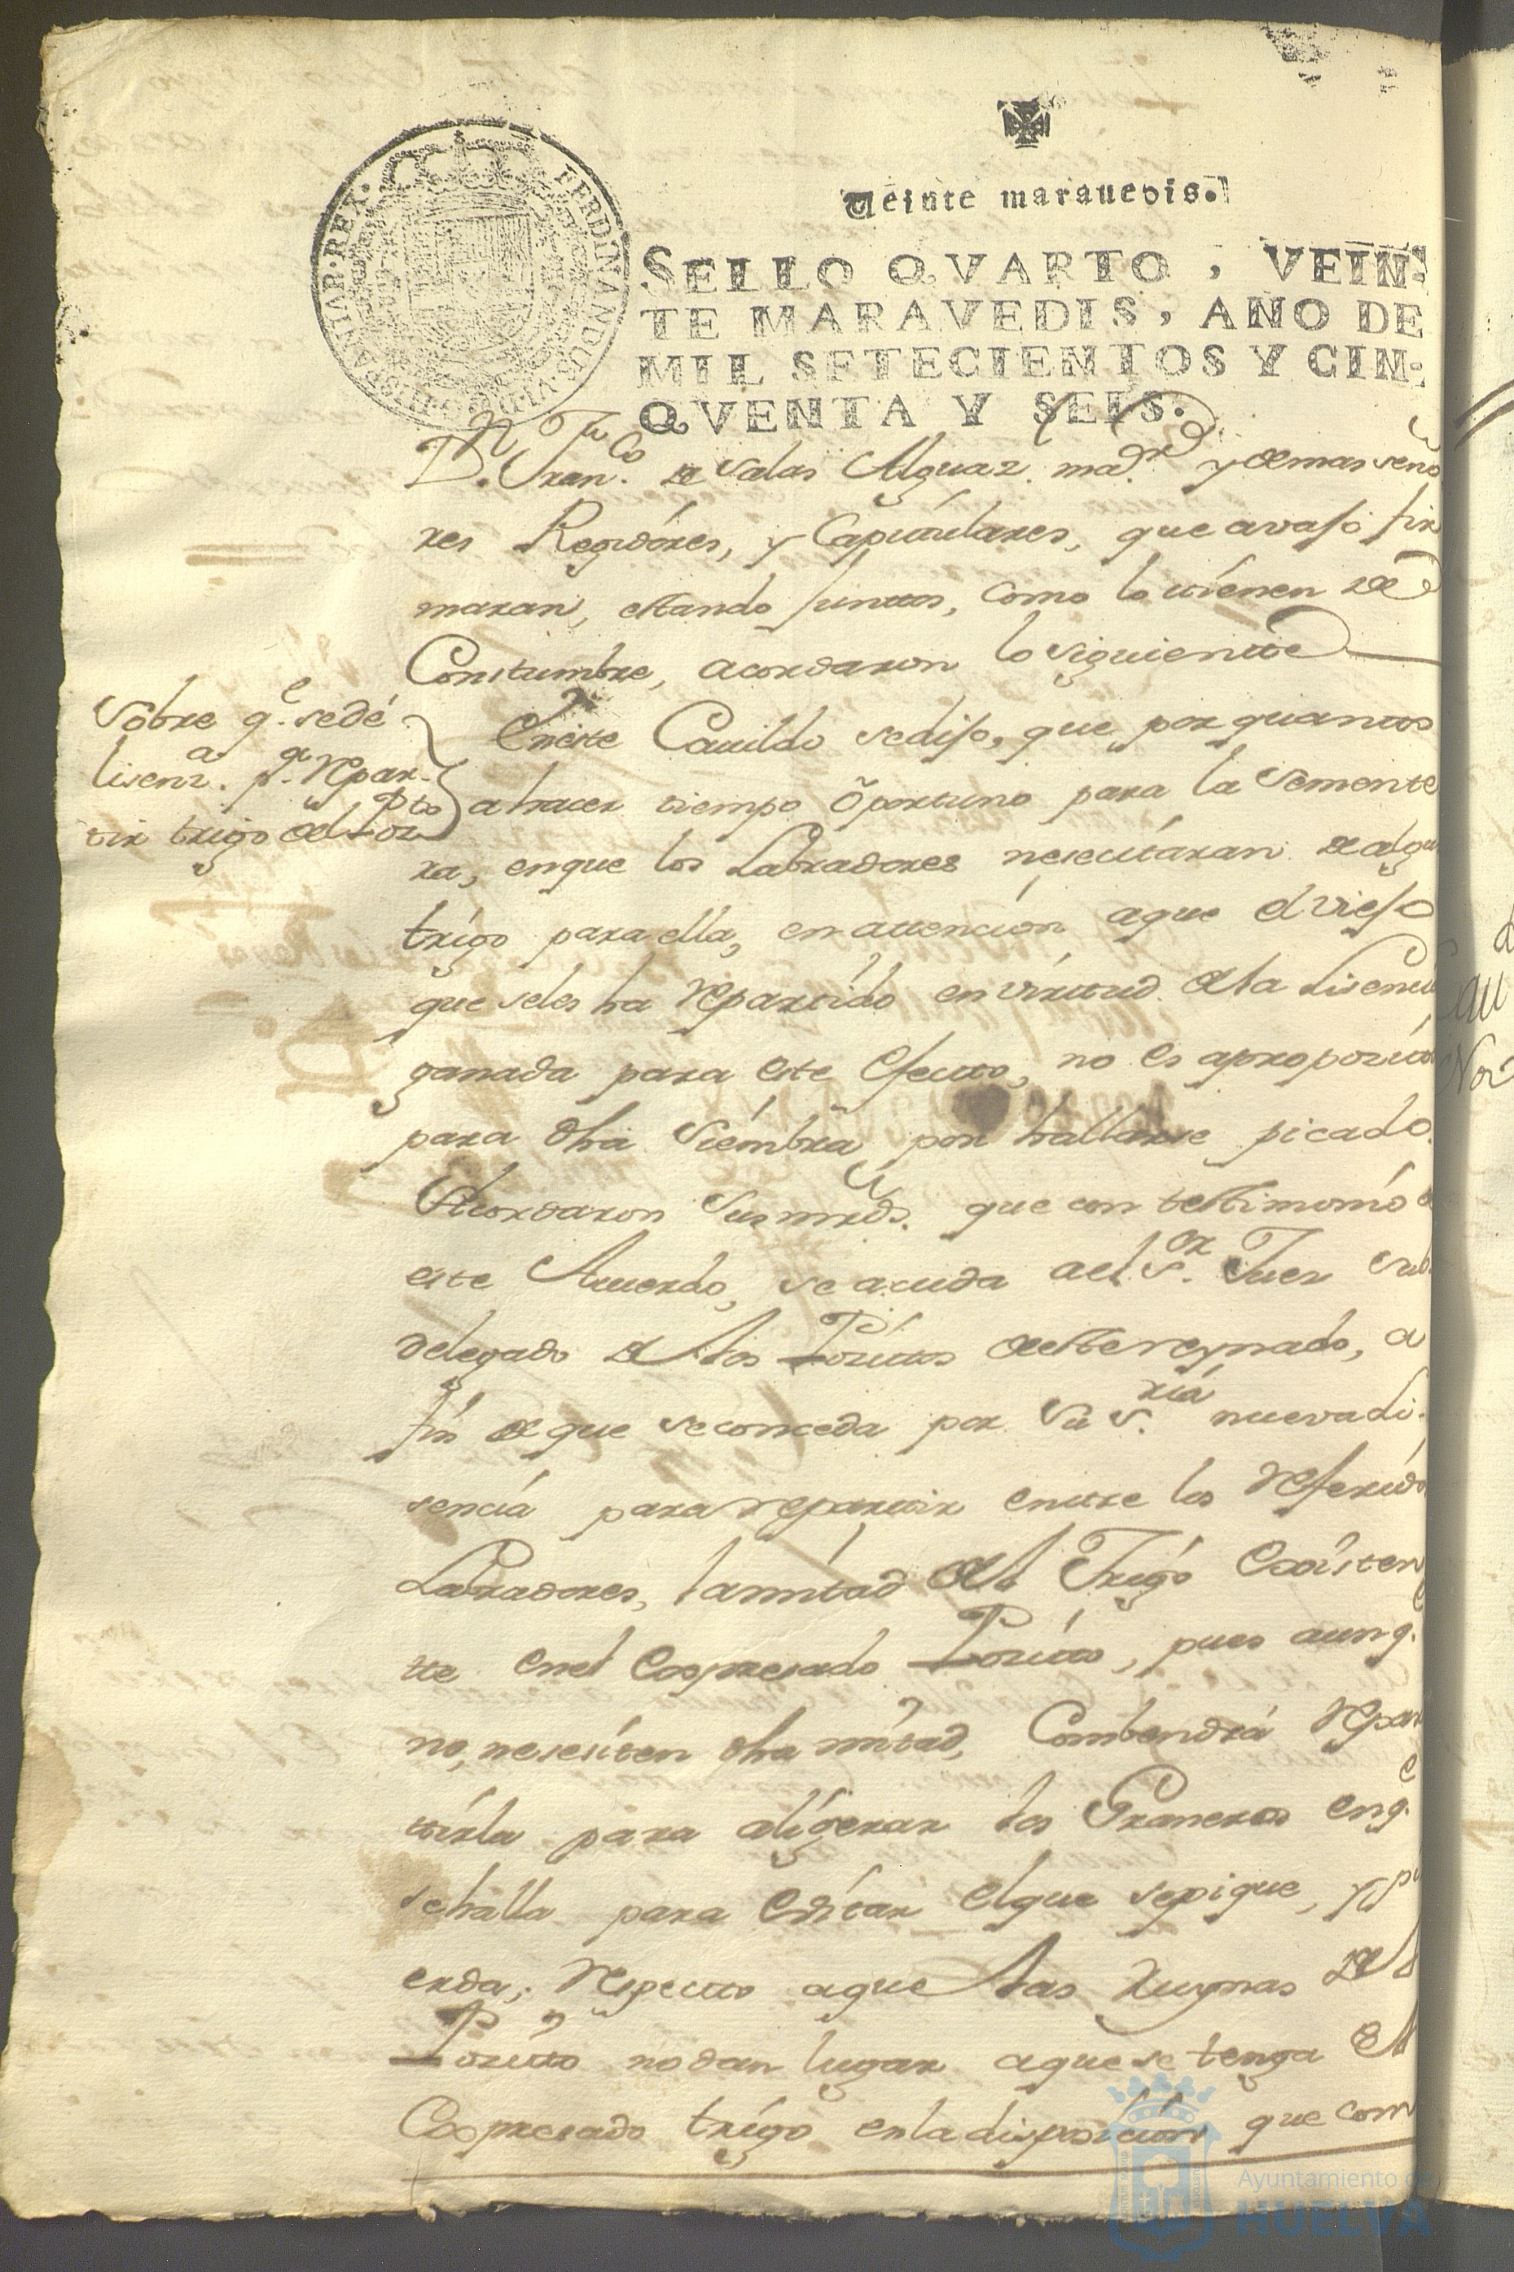 Veinte marauedis.
HISPANIAR·REX· FERDINANDUS·VI·D·G·
SELLO QVARTO, VEIN-
TE MARAVEDIS, AÑO DE
MIL SETECIENTOS Y CIN-
QVENTA Y SEIS.
Dn. Franco. de Salas Alguaz. mar. y demas seño
res Regidóres, y Capitulares, que avajo fir
maran, estando juntos, como lo tienen de
Constumbre, acordaron lo siguiente
Sobre qe. se dé
lisenza. pa. Repar-
tir trigo del Pozto
En este Cavildo se dijo, que por quanto
a hacer tiempo oportuno para la Semente
ra, en que los Labradores nesecitáran de algu
trigo para ella, en attencion a que el viejo
que seles ha Repartido en virtud de la Lisencia
ganada para este efecto, no es aproposito
para dha Siémbra por hallarse picado.
Acordaron Sus mrds. que con testimonio
este Acuerdo, se acuda a el Sor. Juez Sub
delegado de los Pósitos de este reynado, a
fin de que se conceda por Su Sria. nueva li-
sencia para repartir entre los Referido
Labradores, la mitad de el Trigo Exsisten
te en el Expresado Posito, pues aunqe.
no, nesesiten dha mitad, Combendrá Repar
tirla para alígerar los Graneros en qe.
se halla para Evitar el que se pique, y p
erda; Respecto a que las Ruynas de el
Posito no dan lugar a que se tenga el
Expresado trigo en la disposicion que com
au
Ayuntamiento de
HUELVA